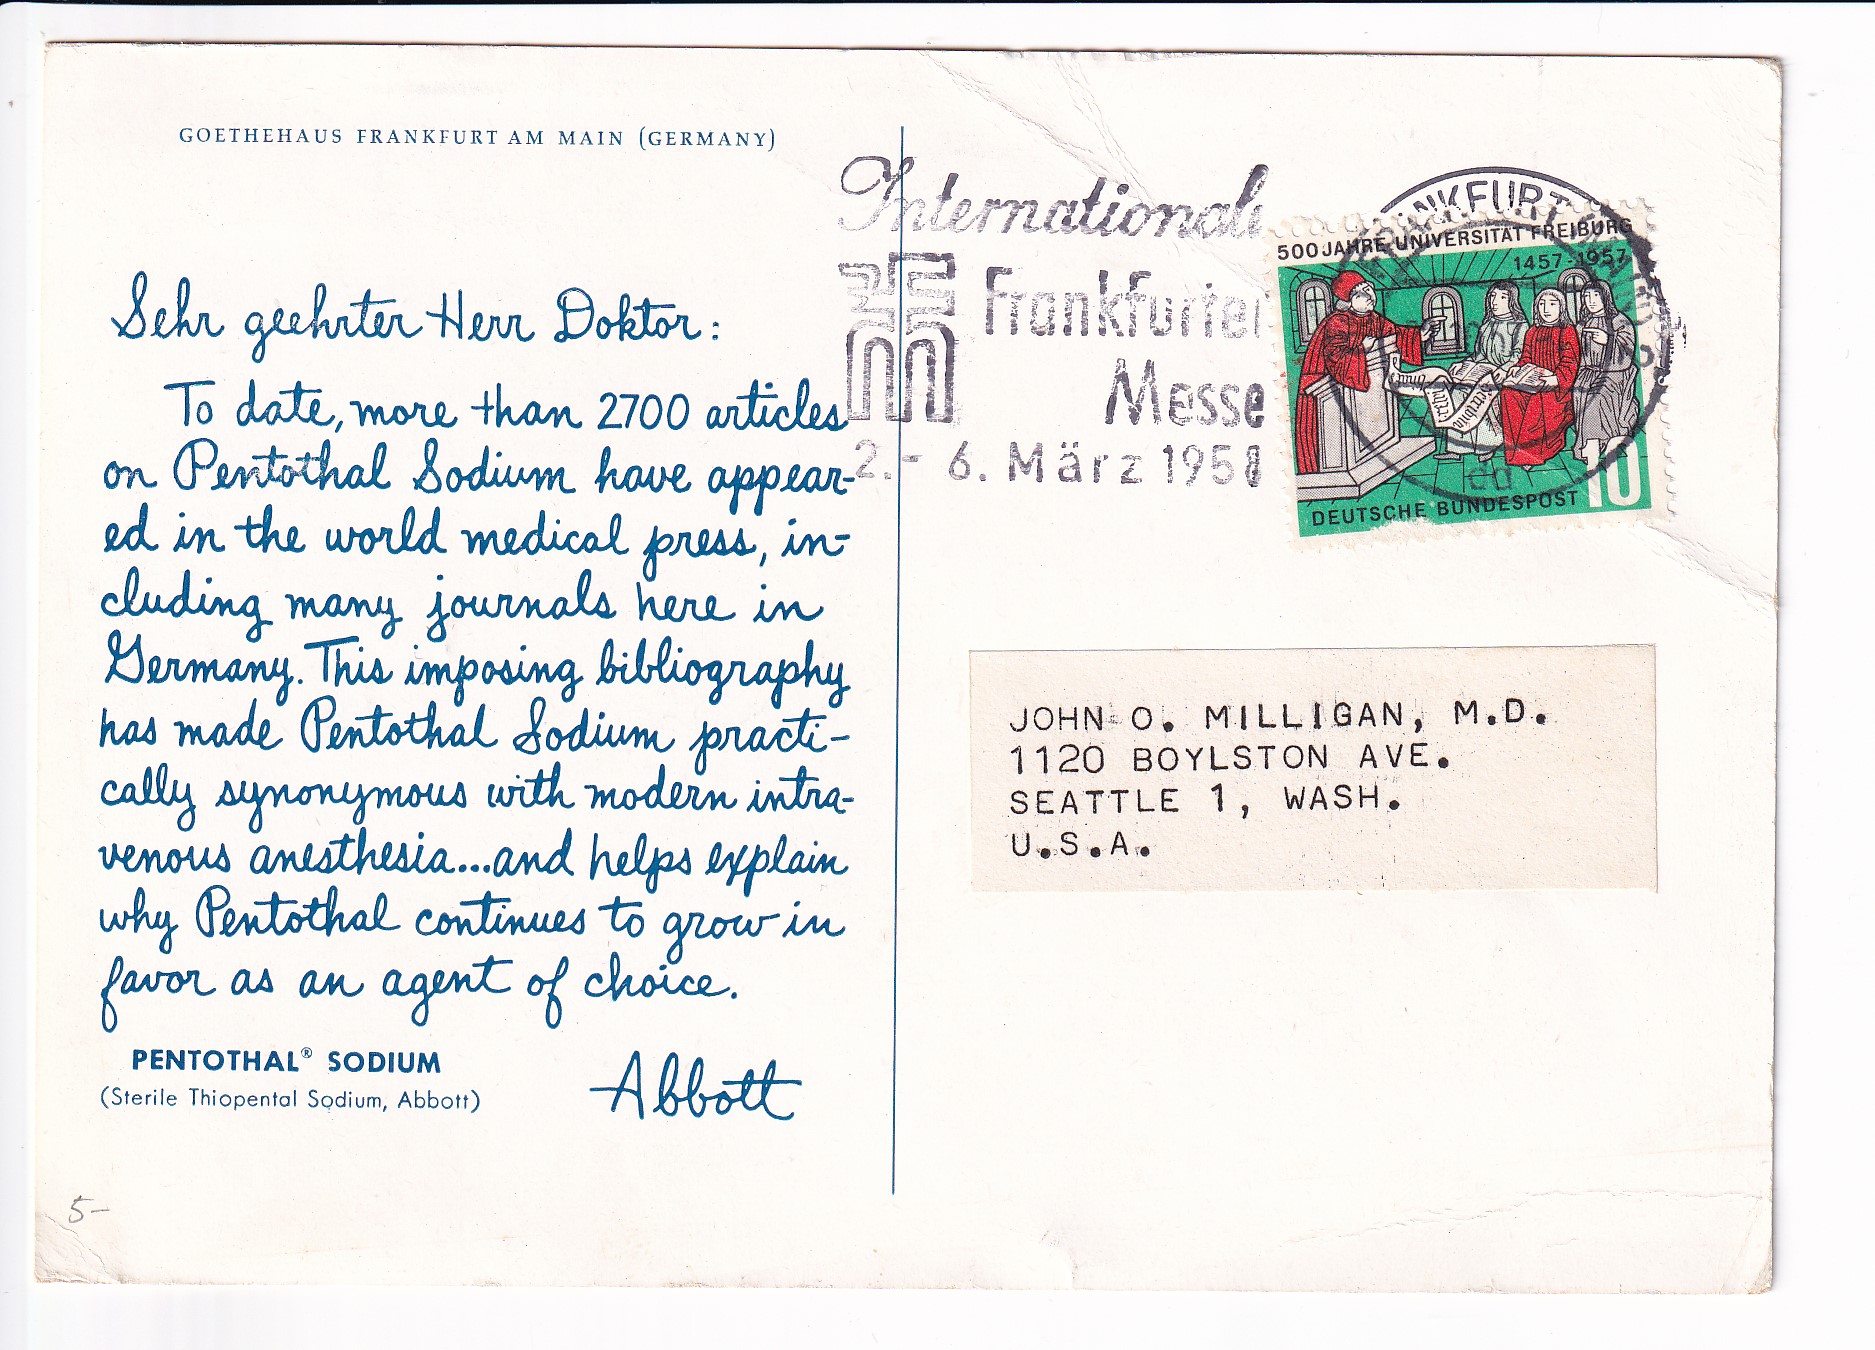 GOETHEHAUS FRANKFURT AM MAIN (GERMANY)
Sehr geehrter Herr Doktor:
To date, more than 2700 articles
on Pentothal Sodium have appear-
ed in the world medical press, in-
cluding many journals here in
Germany. This imposing bibliography
has made Pentothal Sodium practi-
cally synonymous with modern intra-
venous anesthesia...and helps explain
why Pentothal continues to grow in
favor as an agent of choice.
PENTOTHAL® SODIUM
(Sterile Thiopental Sodium, Abbott)
Abbott
5-
Internationale
Frankfurter
Messe
2.- 6. März 1958
FRANKFURT
500 JAHRE UNIVERSITÄT FREIBURG
1457-1957
DEUTSCHE BUNDESPOST
10
JOHN O. MILLIGAN, M.D.
1120 BOYLSTON AVE.
SEATTLE 1, WASH.
U.S.A.